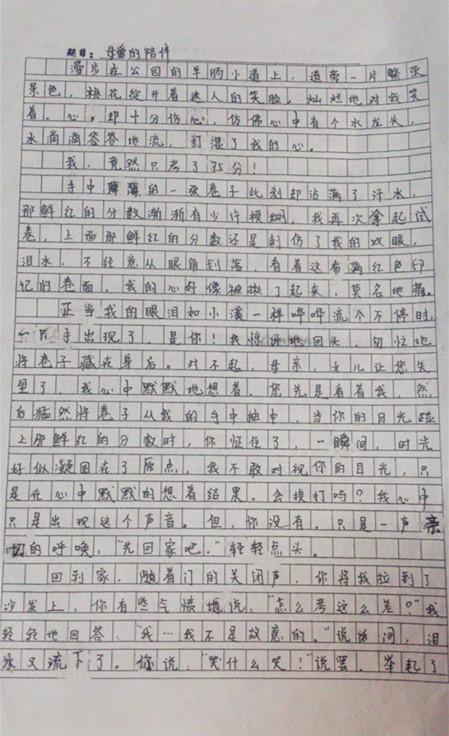 题目：母爱的陪伴
漫步在公园的羊肠小道上，道旁一片繁华
景色，桃花绽开着迷人的笑脸。灿烂地对我笑
着。心。却十分伤心，仿佛心中有个水龙头，
水滴滴答答地流，打湿了我的心。
我，竟然只考了75分！
手中薄薄的一张卷子此刻却沾满了汗水，
那鲜红的分数渐渐有少许模糊，我再次拿起试
卷，上面那鲜红的分数还是刺伤了我的双眼，
泪水，不经意从眼角划落，看着这布满红色印
记的卷面，我的心好像被揪了起来，莫名地痛。
正当我的眼泪如小溪一样哗哗流个不停时，
一只手出现了，是你！我惊讶地回头，匆忙地
将卷子藏在身后。对不起，母亲，女儿让您失
望了，我心中默默地想着。您先是看着我，然
后猛然将卷子从我的手中抽中，当你的目光碰
上那鲜红的分数时，你怔住了，一瞬间，时光
好似凝固在了原点，我不敢对视你的目光，只
是在心中默默的想着结果。会挨打吗？我心中
只是出现这个声音。但，你没有，只是一声亲
切的呼唤，“先回家吧，”轻轻点头。
回到家，随着门的关闭声，你将我拉到了
沙发上，你有些气愤地说，“怎么考这么差？”我
轻轻地回答，“我…我不是故意的。”说话间，泪
水又流下了。你说，“哭什么哭！”说罢，举起了